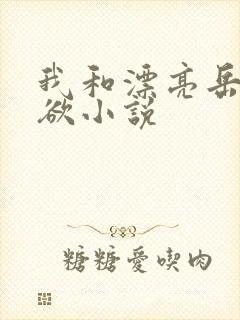 我和漂亮岳
欲小説
糖糖愛喫肉